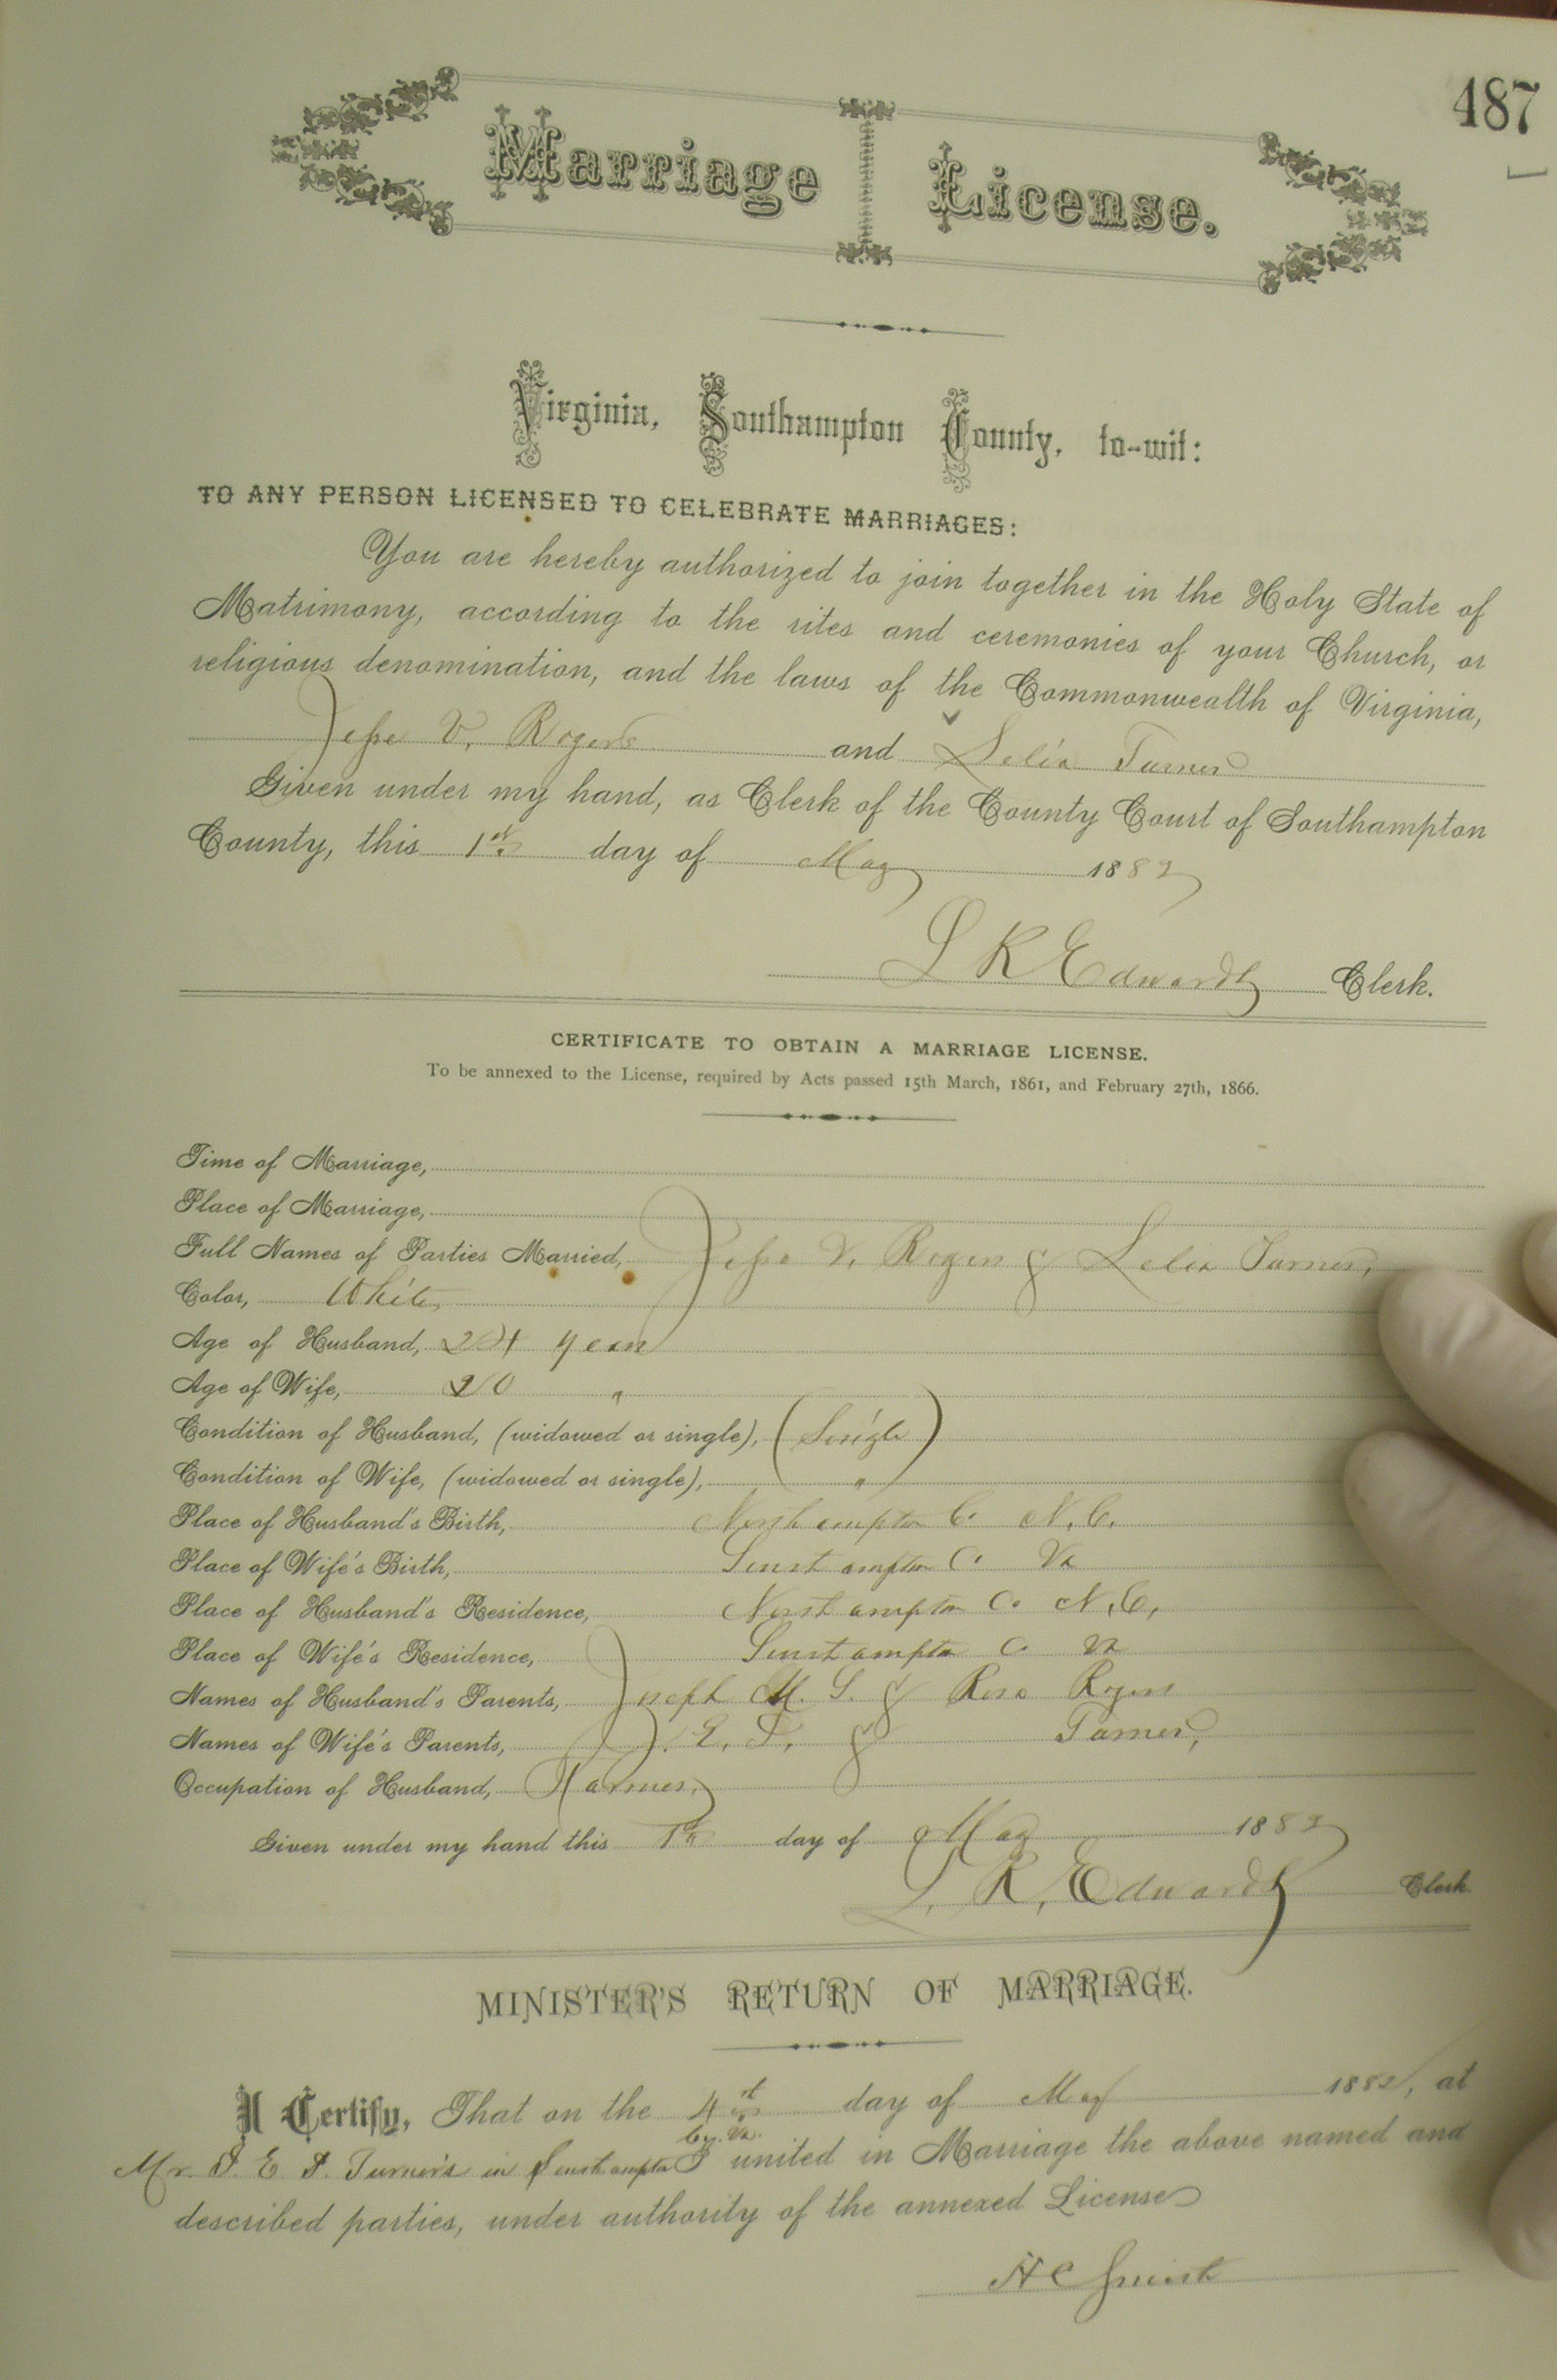 487
Marriage License.
Virginia, Southampton County, to-wit:
TO ANY PERSON LICENSED TO CELEBRATE MARRIAGES:
You are hereby authorized to join together in the Holy State of
Matrimony, according to the rites and ceremonies of your Church, or
religious denomination, and the laws of the Commonwealth of Virginia,
Jesse V. Rogers and Lelia Turner
Given under my hand, as Clerk of the County Court of Southampton
County, this 1st day of May 1882
L R Edwards Clerk.
CERTIFICATE TO OBTAIN A MARRIAGE LICENSE.
To be annexed to the License, required by Acts passed 15th March, 1861, and February 27th, 1866.
Time of Marriage,
Place of Marriage,
Full Names of Parties Married, Jesse V. Rogers & Lelia Turner,
Color, White
Age of Husband, 24 years
Age of Wife, 20 "
Condition of Husband, (widowed or single), (Single)
Condition of Wife, (widowed or single), "
Place of Husband's Birth, Northampton C. N.C.
Place of Wife's Birth, Southampton C. Va
Place of Husband's Residence, Northampton Co N.C.
Place of Wife's Residence, Southampton C. Va
Names of Husband's Parents, Joseph M. S. & Rogers
Names of Wife's Parents, J. E. & Turner,
Occupation of Husband, Farmer,
Given under my hand this 1st day of May 1882
L. R. Edwards Clerk
MINISTER'S RETURN OF MARRIAGE.
I Certify, That on the 4 day of May 1882, at
Cy. Va.
Mr. E Turner's in Southampton I united in Marriage the above named and
described parties, under authority of the annexed License
H C Smith